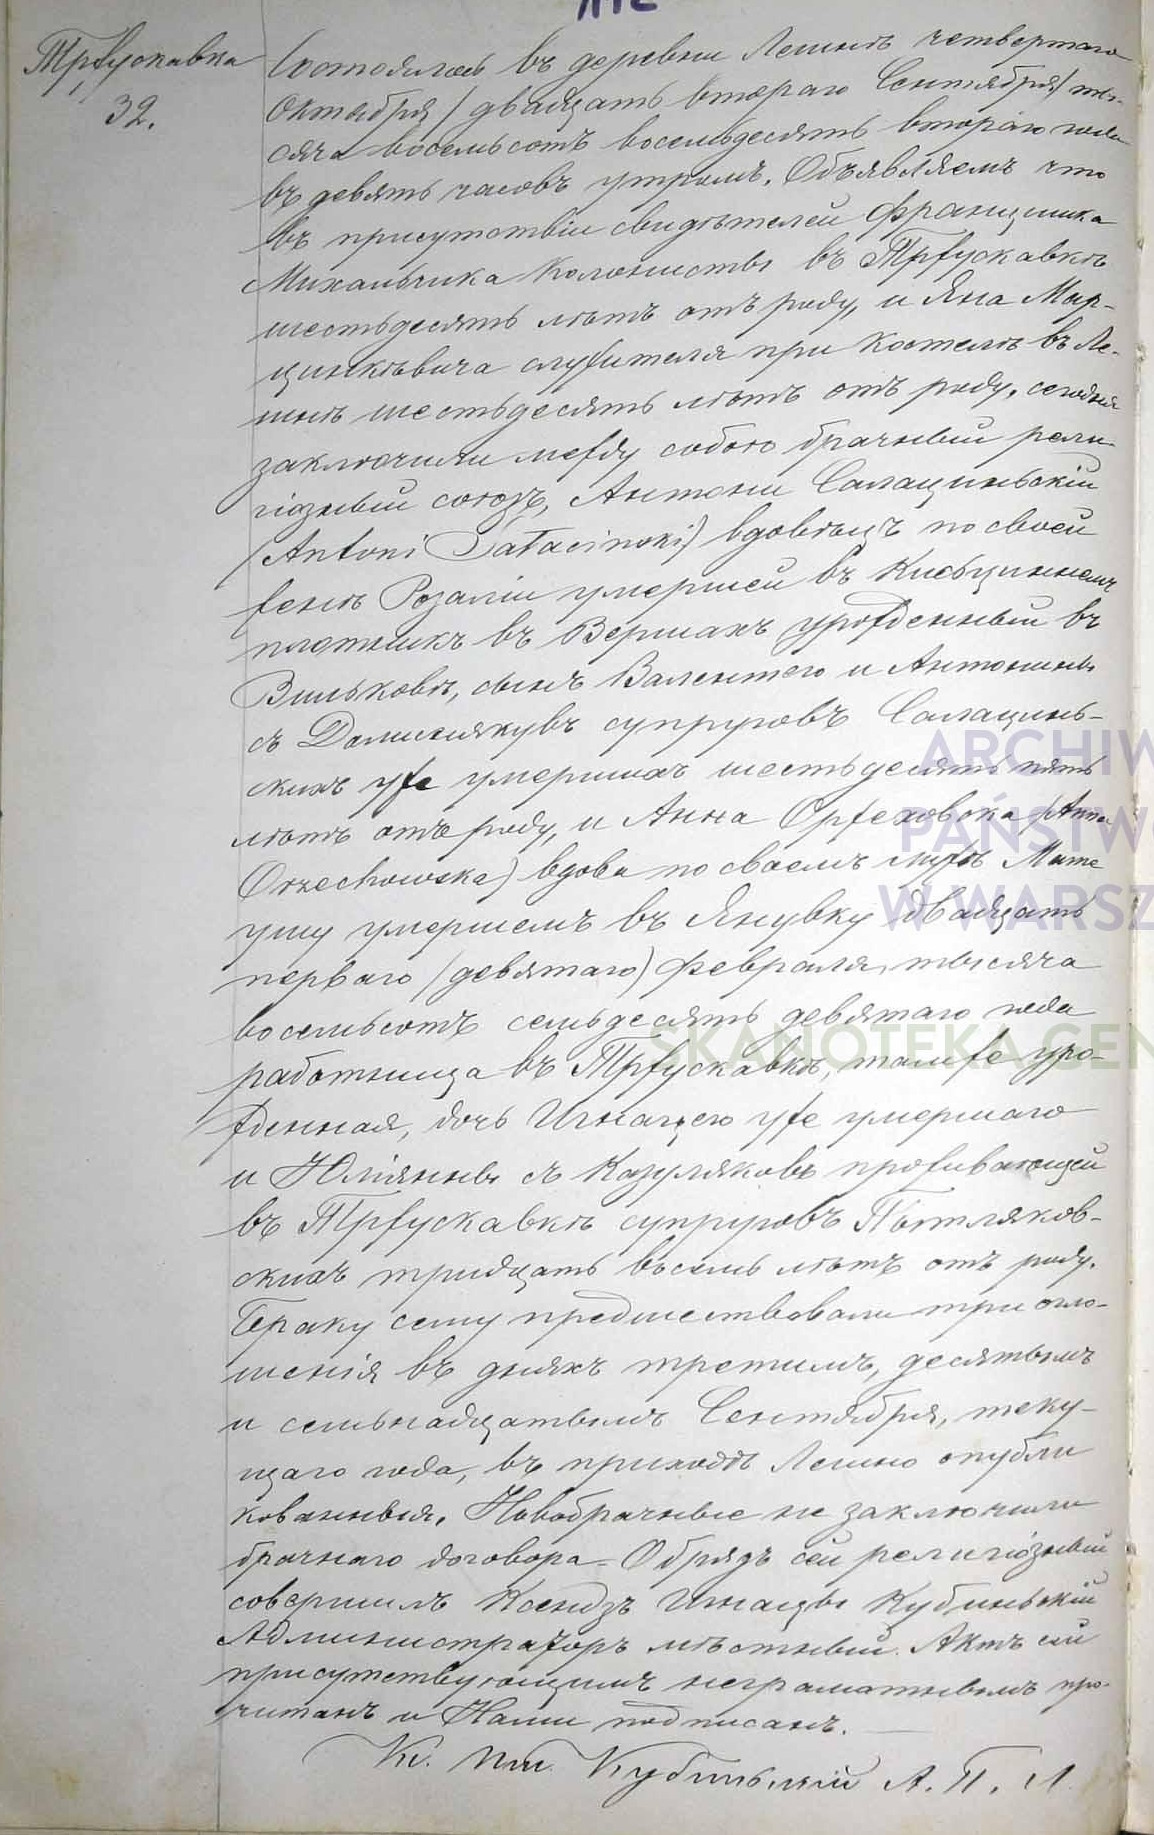 Тржускавка
32.
Состоялось въ деревни Лешнѣ четвертаго
Октября / двадцать втораго Сентября / ты-
сяча восемьсотъ восемьдесять втораго года
въ девять часовъ утромъ. Объявляемъ что
въ присутствіи свидѣтелей Францишка
Михальчика колонисты въ Тржускавкѣ
шестьдесятъ лѣтъ отъ роду, и Яна Мар-
цинкѣвича служителя при костелѣ въ Ле-
шнѣ шестьдесятъ лѣтъ отъ роду, сегодня
заключили между собою брачный рели
гіозный союзъ, Антони Салациньскій
(Antoni Sałaciński) вдовѣцъ по своей
женѣ Розаліи умершей въ
плотникъ въ Вершахъ урожденный въ
Вильковѣ, сынъ Валентего и Антонины
съ Доминякувъ супруговъ Салацинь-
скихъ уже умершихъ шестьдесятъ пять
лѣтъ отъ роду, и Анна Оржеховска (Anna
Orzechowska) вдова по своемъ мужѣ Мате
ушу умершемъ въ Янувку двадцать
перваго (девятаго) февраля, тысяча
восемьсотъ семьдесять девятаго года
работница въ Тржускавкѣ, тамже уро-
жденная, дочь Игнацего уже умершаго
и Юліянны съ Казуляковъ проживающей
въ Тржускавкѣ супруговъ Пѣтляков-
скихъ тридцать восемь лѣтъ отъ роду.
Браку сему предшествовали три огло-
шенія въ дняхъ третимъ, десятымъ
и семьнадцатымъ Сентября, теку-
щаго года, въ приходѣ Лешно опубли
кованныя. Новобрачные не заключили
брачнаго договора = Обрядъ сей религіозный
совершилъ Ксендзъ Игнацы Кубиньскій
Администраторъ мѣстный. Актъ сей
присутствующимъ неграматнымъ про-
читанъ и Нами подписанъ. —
Кс. Игн. Кубиньскій А. П. Л.
ARCHIW
PAŃSTWO
W WARSZ
SKANOTEKA.GEN